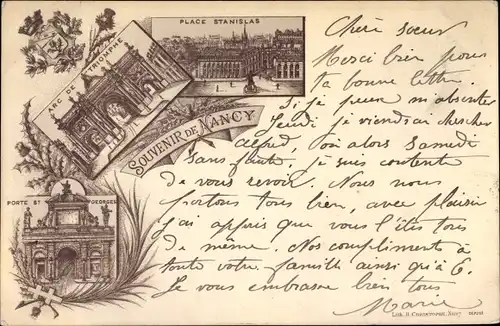 PLACE STANISLAS
ARC DE TRIOMPHE
SOUVENIR DE NANCY
PORTE ST GEORGES
Chère sœur
Merci bien pour
ta bonne lettre.
Si je peux m'absenter
Jeudi je viendrai chercher
Alfred, ou alors Samedi
sans faute, je suis contente
de vous revoir. Nous nous
portons tous bien, avec plaisir
j'ai appris que vous l'êtes tous
de même. Nos compliments à
toute votre famille ainsi qu'à G.
Je vous embrasse bien tous
Marie
Nancy